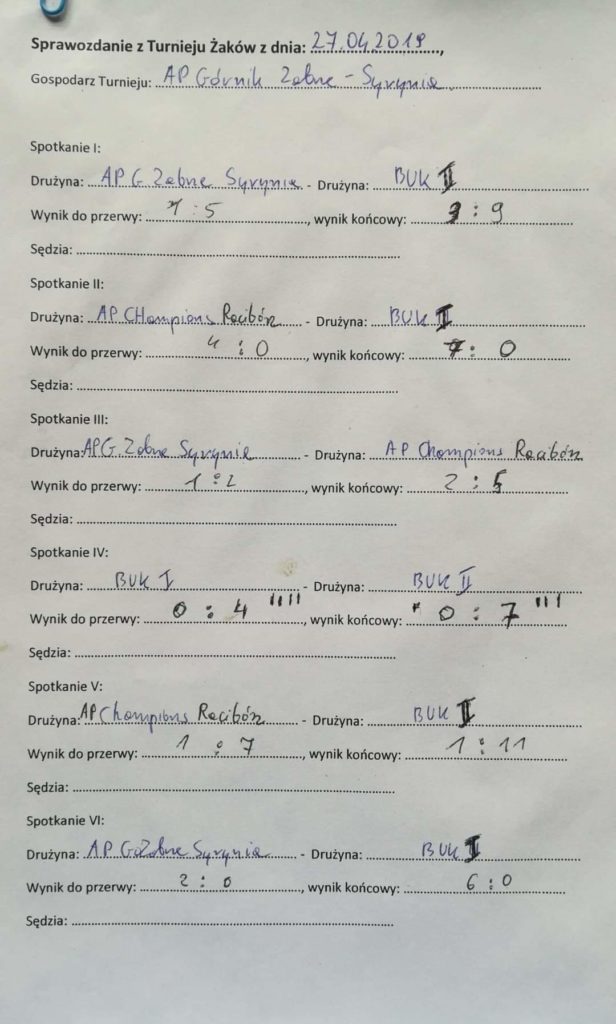 Sprawozdanie z Turnieju Żaków z dnia: 27.04.2019,
Gospodarz Turnieju: AP Górnik Zabne - Syrynia
Spotkanie I:
Drużyna: AP G Zabne Syrynia - Drużyna: BUK II
Wynik do przerwy: 1:5, wynik końcowy: 3:9
Sędzia:
Spotkanie II:
Drużyna: AP CHampions Racibórz - Drużyna: BUK I
Wynik do przerwy: 4:0, wynik końcowy: 7:0
Sędzia:
Spotkanie III:
Drużyna: AP G. Zabne Syrynia - Drużyna: AP Champions Racibórz
Wynik do przerwy: 1:2, wynik końcowy: 2:5
Sędzia:
Spotkanie IV:
Drużyna: BUK I - Drużyna: BUK II
Wynik do przerwy: 0:4, wynik końcowy: 0:7
Sędzia:
Spotkanie V:
Drużyna: AP Champions Racibórz - Drużyna: BUK II
Wynik do przerwy: 1:7, wynik końcowy: 1:11
Sędzia:
Spotkanie VI:
Drużyna: AP G Zabne Syrynia - Drużyna: BUK I
Wynik do przerwy: 2:0, wynik końcowy: 6:0
Sędzia: